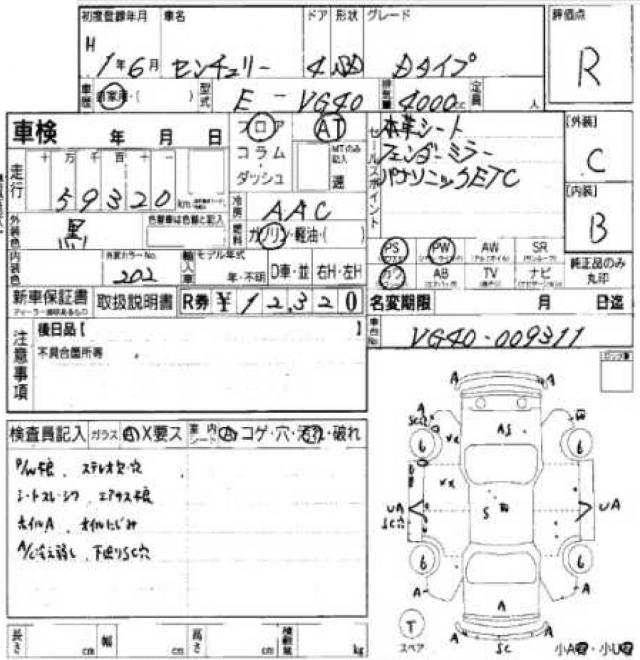 初度登録年月 車名 ドア 形状 グレード 評価点
H 1年6月 センチュリー 4 SD Dタイプ R
車歴 自家用・( ) 型式 E-VG40 排気量 4000cc 定員 人
車検 年 月 日 フロア AT 本革シート [外装]
走行 十 万 千 百 十 一 コラム・ MTのみ記入 セールスポイント フェンダーミラー C
59320 km ダッシュ 速 パナソニックETC
外装色 黒 色替車は色番と記入 冷房 AAC [内装]
燃料 ガソリン・軽油・( ) B
PS PW AW SR
内装色 カラーNo. 202 輸入車 モデル年式 年・不明 D車・並 右H・左H カワ AB TV ナビ 純正品のみ丸印
新車保証書 取扱説明書 R券 ¥12,320 名変期限 月 日迄
注意事項 後日品[ 車台No. VG40-009311
不具合箇所等
検査員記入 ガラス A X要ス 室内 シート A コゲ・穴・汚れ・破れ
P/W根、ステレオ欠・穴
シートスレ・シワ エアサス根
ホイルA、オイルにじみ
A/C冷え弱し、下廻りSC穴
長さ cm 幅 cm 高さ cm 積載量 kg
A A
A
AS
6 6
UA S UA
SC穴
6 6
A A A
T
スペア SC 小A・小U